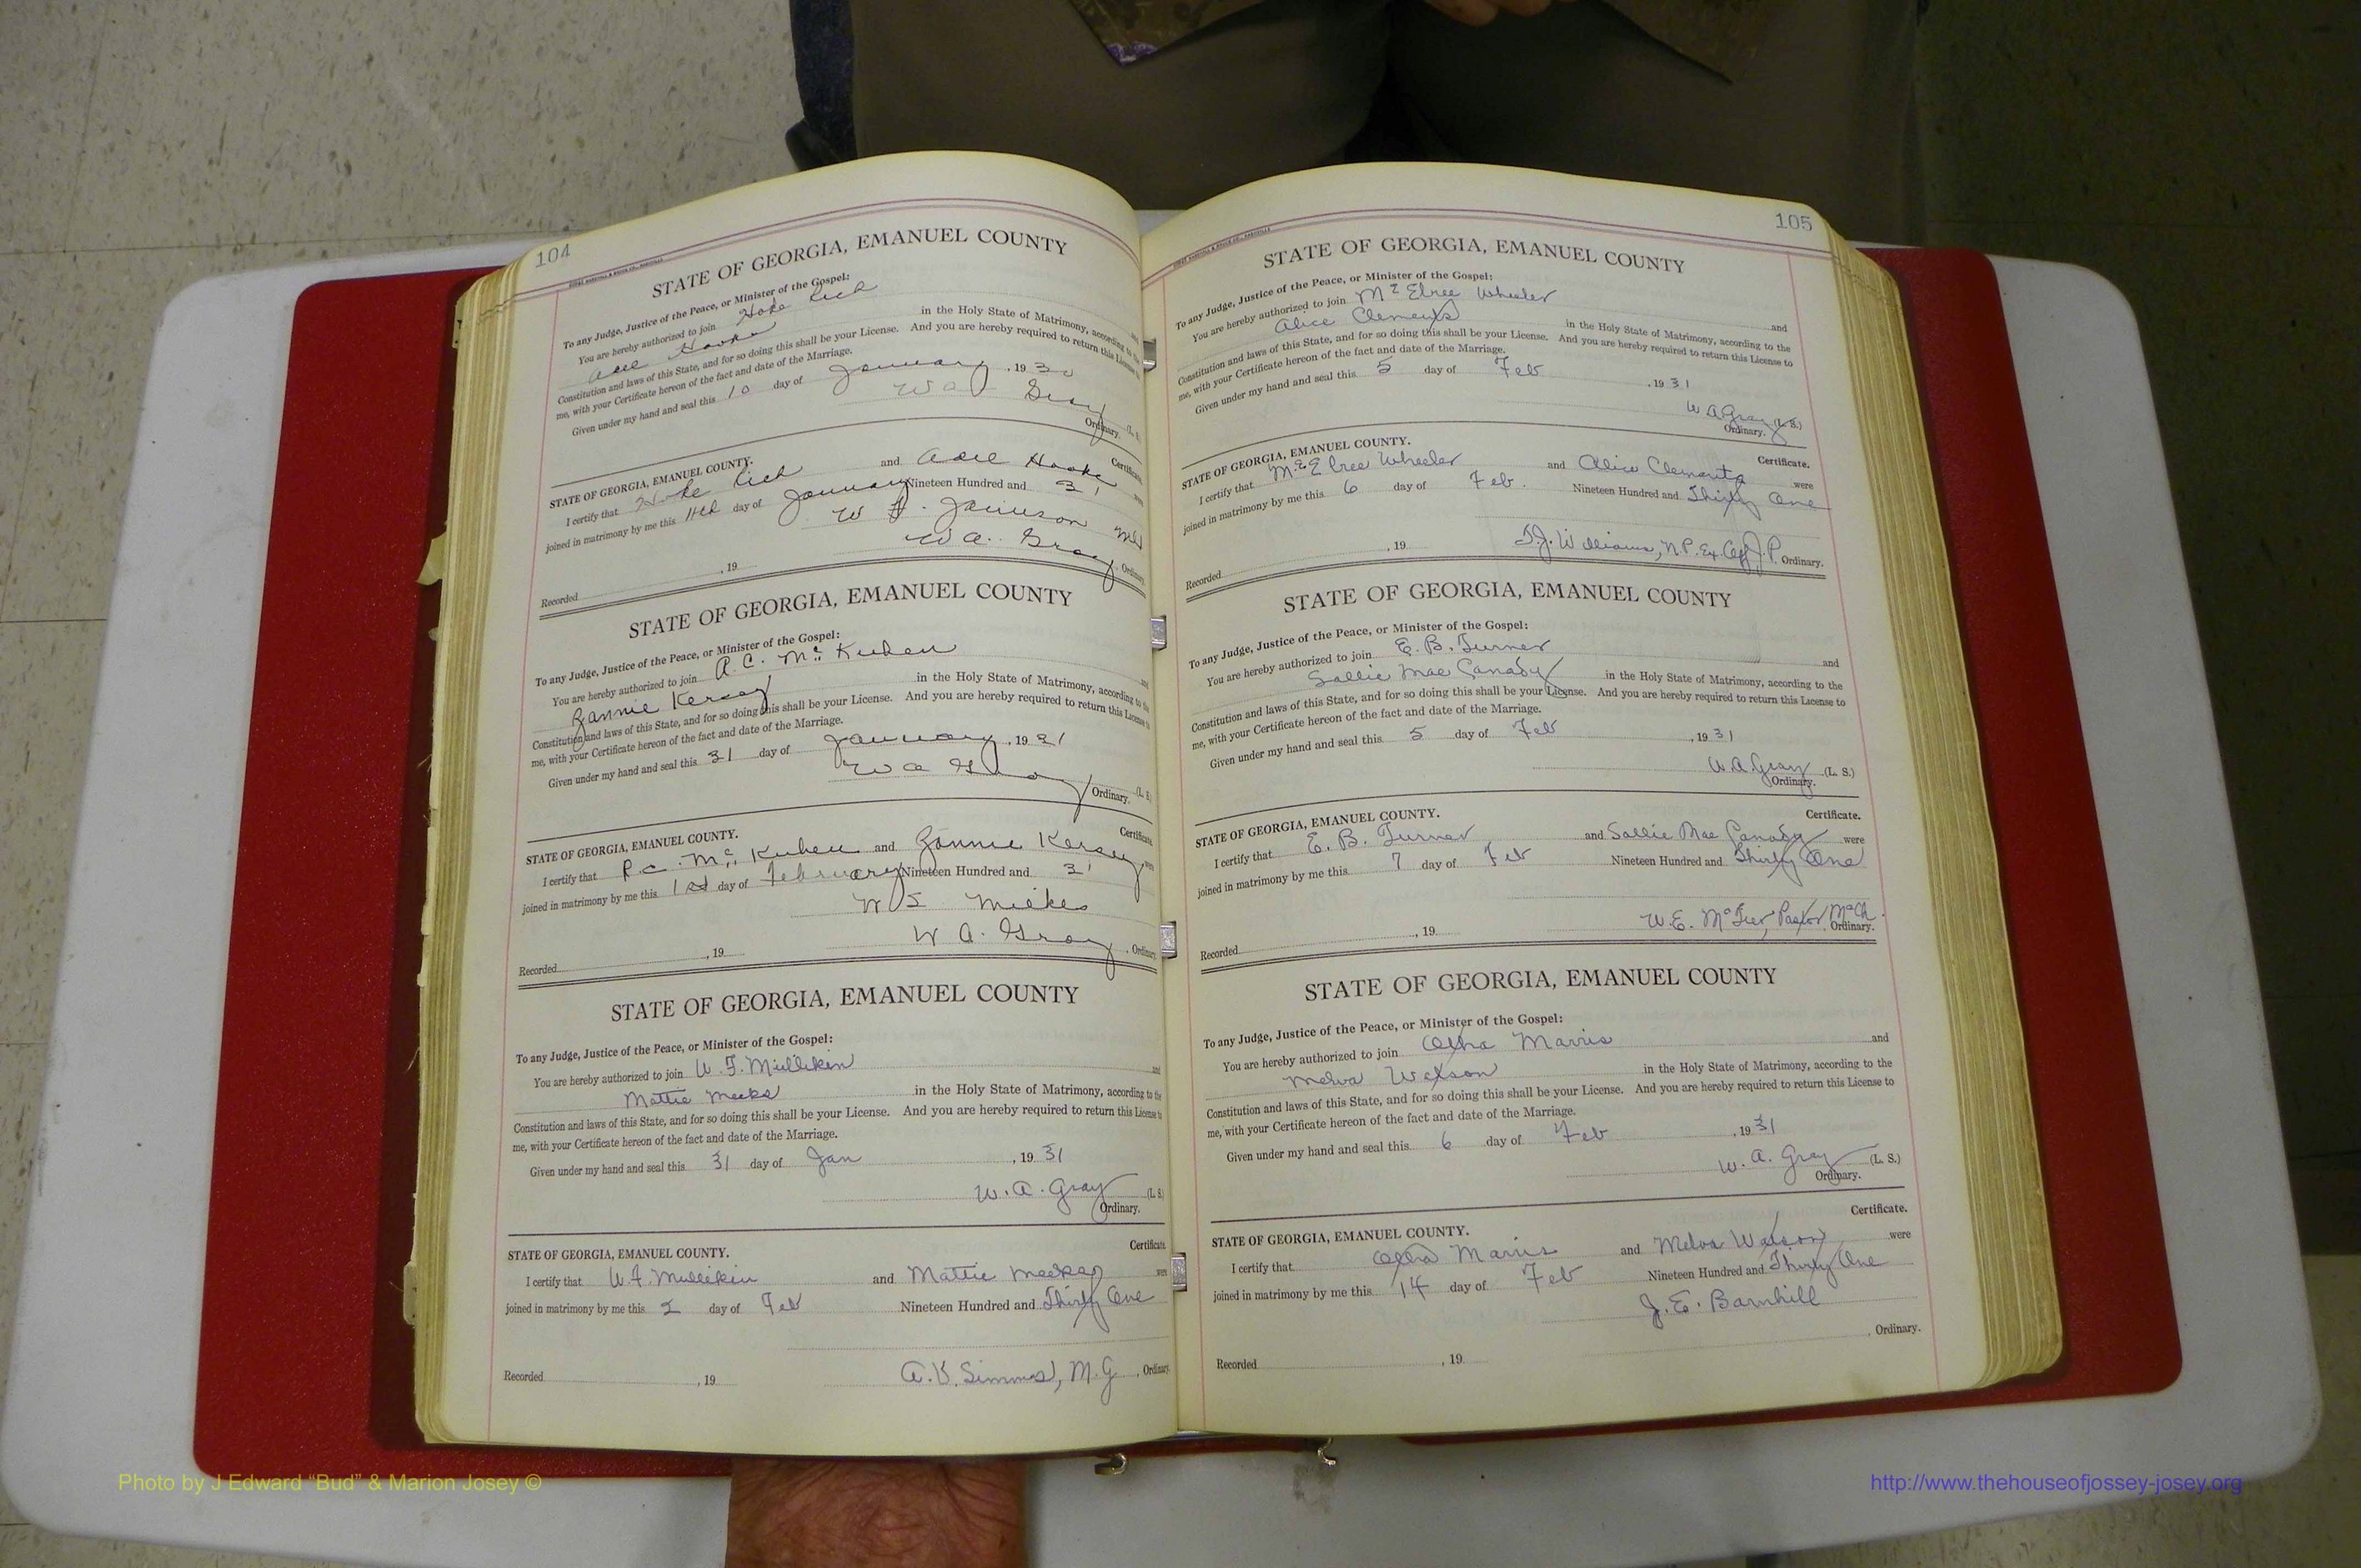 104
STATE OF GEORGIA, EMANUEL COUNTY
To any Judge, Justice of the Peace, or Minister of the Gospel:
You are hereby authorized to join Hoke Rich
in the Holy State of Matrimony, according to the
Constitution and laws of this State, and for so doing this shall be your License. And you are hereby required to return this License to
me, with your Certificate hereon of the fact and date of the Marriage.
Given under my hand and seal this 10 day of January, 1930
W a Gray (L. S.)
Ordinary.
STATE OF GEORGIA, EMANUEL COUNTY. Certificate.
I certify that Hoke Rich and Hooks were
joined in matrimony by me this 11th day of January Nineteen Hundred and 31
W
W a. Gray, Ordinary.
Recorded , 19
STATE OF GEORGIA, EMANUEL COUNTY
To any Judge, Justice of the Peace, or Minister of the Gospel:
You are hereby authorized to join R. C. and
Kersey in the Holy State of Matrimony, according to the
Constitution and laws of this State, and for so doing this shall be your License. And you are hereby required to return this License to
me, with your Certificate hereon of the fact and date of the Marriage.
Given under my hand and seal this 31 day of January, 1931
W a Gray (L. S.)
Ordinary.
STATE OF GEORGIA, EMANUEL COUNTY. Certificate.
I certify that R. C. and Kersey were
joined in matrimony by me this 1st day of February Nineteen Hundred and 31
W
W a. Gray, Ordinary.
Recorded , 19
STATE OF GEORGIA, EMANUEL COUNTY
To any Judge, Justice of the Peace, or Minister of the Gospel:
You are hereby authorized to join W. F. Mullikin and
Mattie Meeks in the Holy State of Matrimony, according to the
Constitution and laws of this State, and for so doing this shall be your License. And you are hereby required to return this License to
me, with your Certificate hereon of the fact and date of the Marriage.
Given under my hand and seal this 31 day of Jan, 1931
W. A. Gray (L. S.)
Ordinary.
STATE OF GEORGIA, EMANUEL COUNTY. Certificate.
I certify that W. F. Mullikin and Mattie Meeks were
joined in matrimony by me this 2 day of Feb Nineteen Hundred and Thirty One
Recorded , 19 A. V. Simmons, M. G, Ordinary.
105
STATE OF GEORGIA, EMANUEL COUNTY
To any Judge, Justice of the Peace, or Minister of the Gospel:
You are hereby authorized to join McElree Wheeler and
Alice Clements in the Holy State of Matrimony, according to the
Constitution and laws of this State, and for so doing this shall be your License. And you are hereby required to return this License to
me, with your Certificate hereon of the fact and date of the Marriage.
Given under my hand and seal this 5 day of Feb, 1931
W A Gray (L. S.)
Ordinary.
STATE OF GEORGIA, EMANUEL COUNTY. Certificate.
I certify that McElree Wheeler and Alice Clements were
joined in matrimony by me this 6 day of Feb. Nineteen Hundred and Thirty One
Recorded , 19 T. J. Williams, N. P. Ex. Off. J. P. Ordinary.
STATE OF GEORGIA, EMANUEL COUNTY
To any Judge, Justice of the Peace, or Minister of the Gospel:
You are hereby authorized to join E. B. Turner and
Sallie Mae Canady in the Holy State of Matrimony, according to the
Constitution and laws of this State, and for so doing this shall be your License. And you are hereby required to return this License to
me, with your Certificate hereon of the fact and date of the Marriage.
Given under my hand and seal this 5 day of Feb, 1931
W. A. Gray (L. S.)
Ordinary.
STATE OF GEORGIA, EMANUEL COUNTY. Certificate.
I certify that E. B. Turner and Sallie Mae Canady were
joined in matrimony by me this 7 day of Feb Nineteen Hundred and Thirty One
Recorded , 19 W. E. McTier, Pastor Ordinary.
STATE OF GEORGIA, EMANUEL COUNTY
To any Judge, Justice of the Peace, or Minister of the Gospel:
You are hereby authorized to join Marris and
Melva Watson in the Holy State of Matrimony, according to the
Constitution and laws of this State, and for so doing this shall be your License. And you are hereby required to return this License to
me, with your Certificate hereon of the fact and date of the Marriage.
Given under my hand and seal this 6 day of Feb, 1931
W. A. Gray (L. S.)
Ordinary.
STATE OF GEORGIA, EMANUEL COUNTY. Certificate.
I certify that Marris and Melva Watson were
joined in matrimony by me this 14 day of Feb Nineteen Hundred and Thirty One
J. E. Barnhill
Recorded , 19 , Ordinary.
Photo by J Edward “Bud” & Marion Josey ©
http://www.thehouseofjossey-josey.org